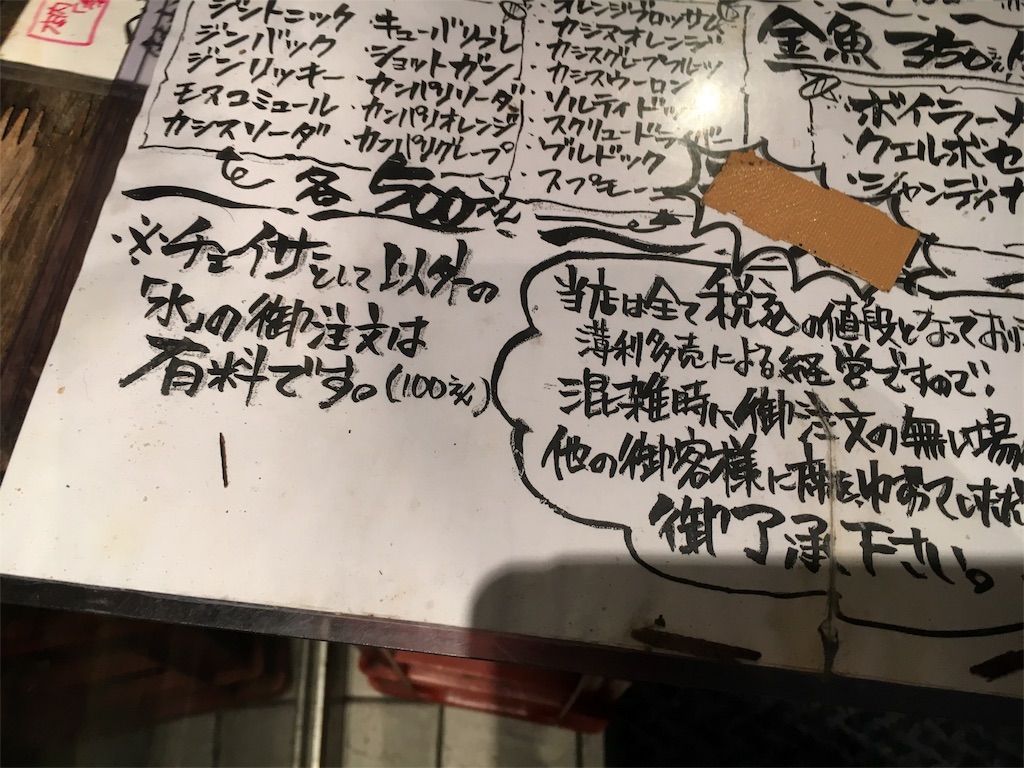 ジントニック
ジンバック
ジンリッキー
モスコミュール
カシスソーダ
キューバリブレ
・ショットガン
・カンパリソーダ
・カンパリオレンジ
・カンパリグレープ
・オレンジブロッサム
・カシスオレンジ
・カシスグレープフルーツ
・カシスウーロン
・ソルティドッグ
・スクリュードライバー
・ブルドック
・スプモーニ
各500えん
金魚 350えん
・ボイラーメ
・クエルボセ
・ジャンディナ
※チェイサーとして以外の
「氷」の御注文は
有料です。(100えん)
当店は全て税込の値段となっており
薄利多売による経営ですので!
混雑時に御注文の無い場
他の御客様に席を
御了承下さい。